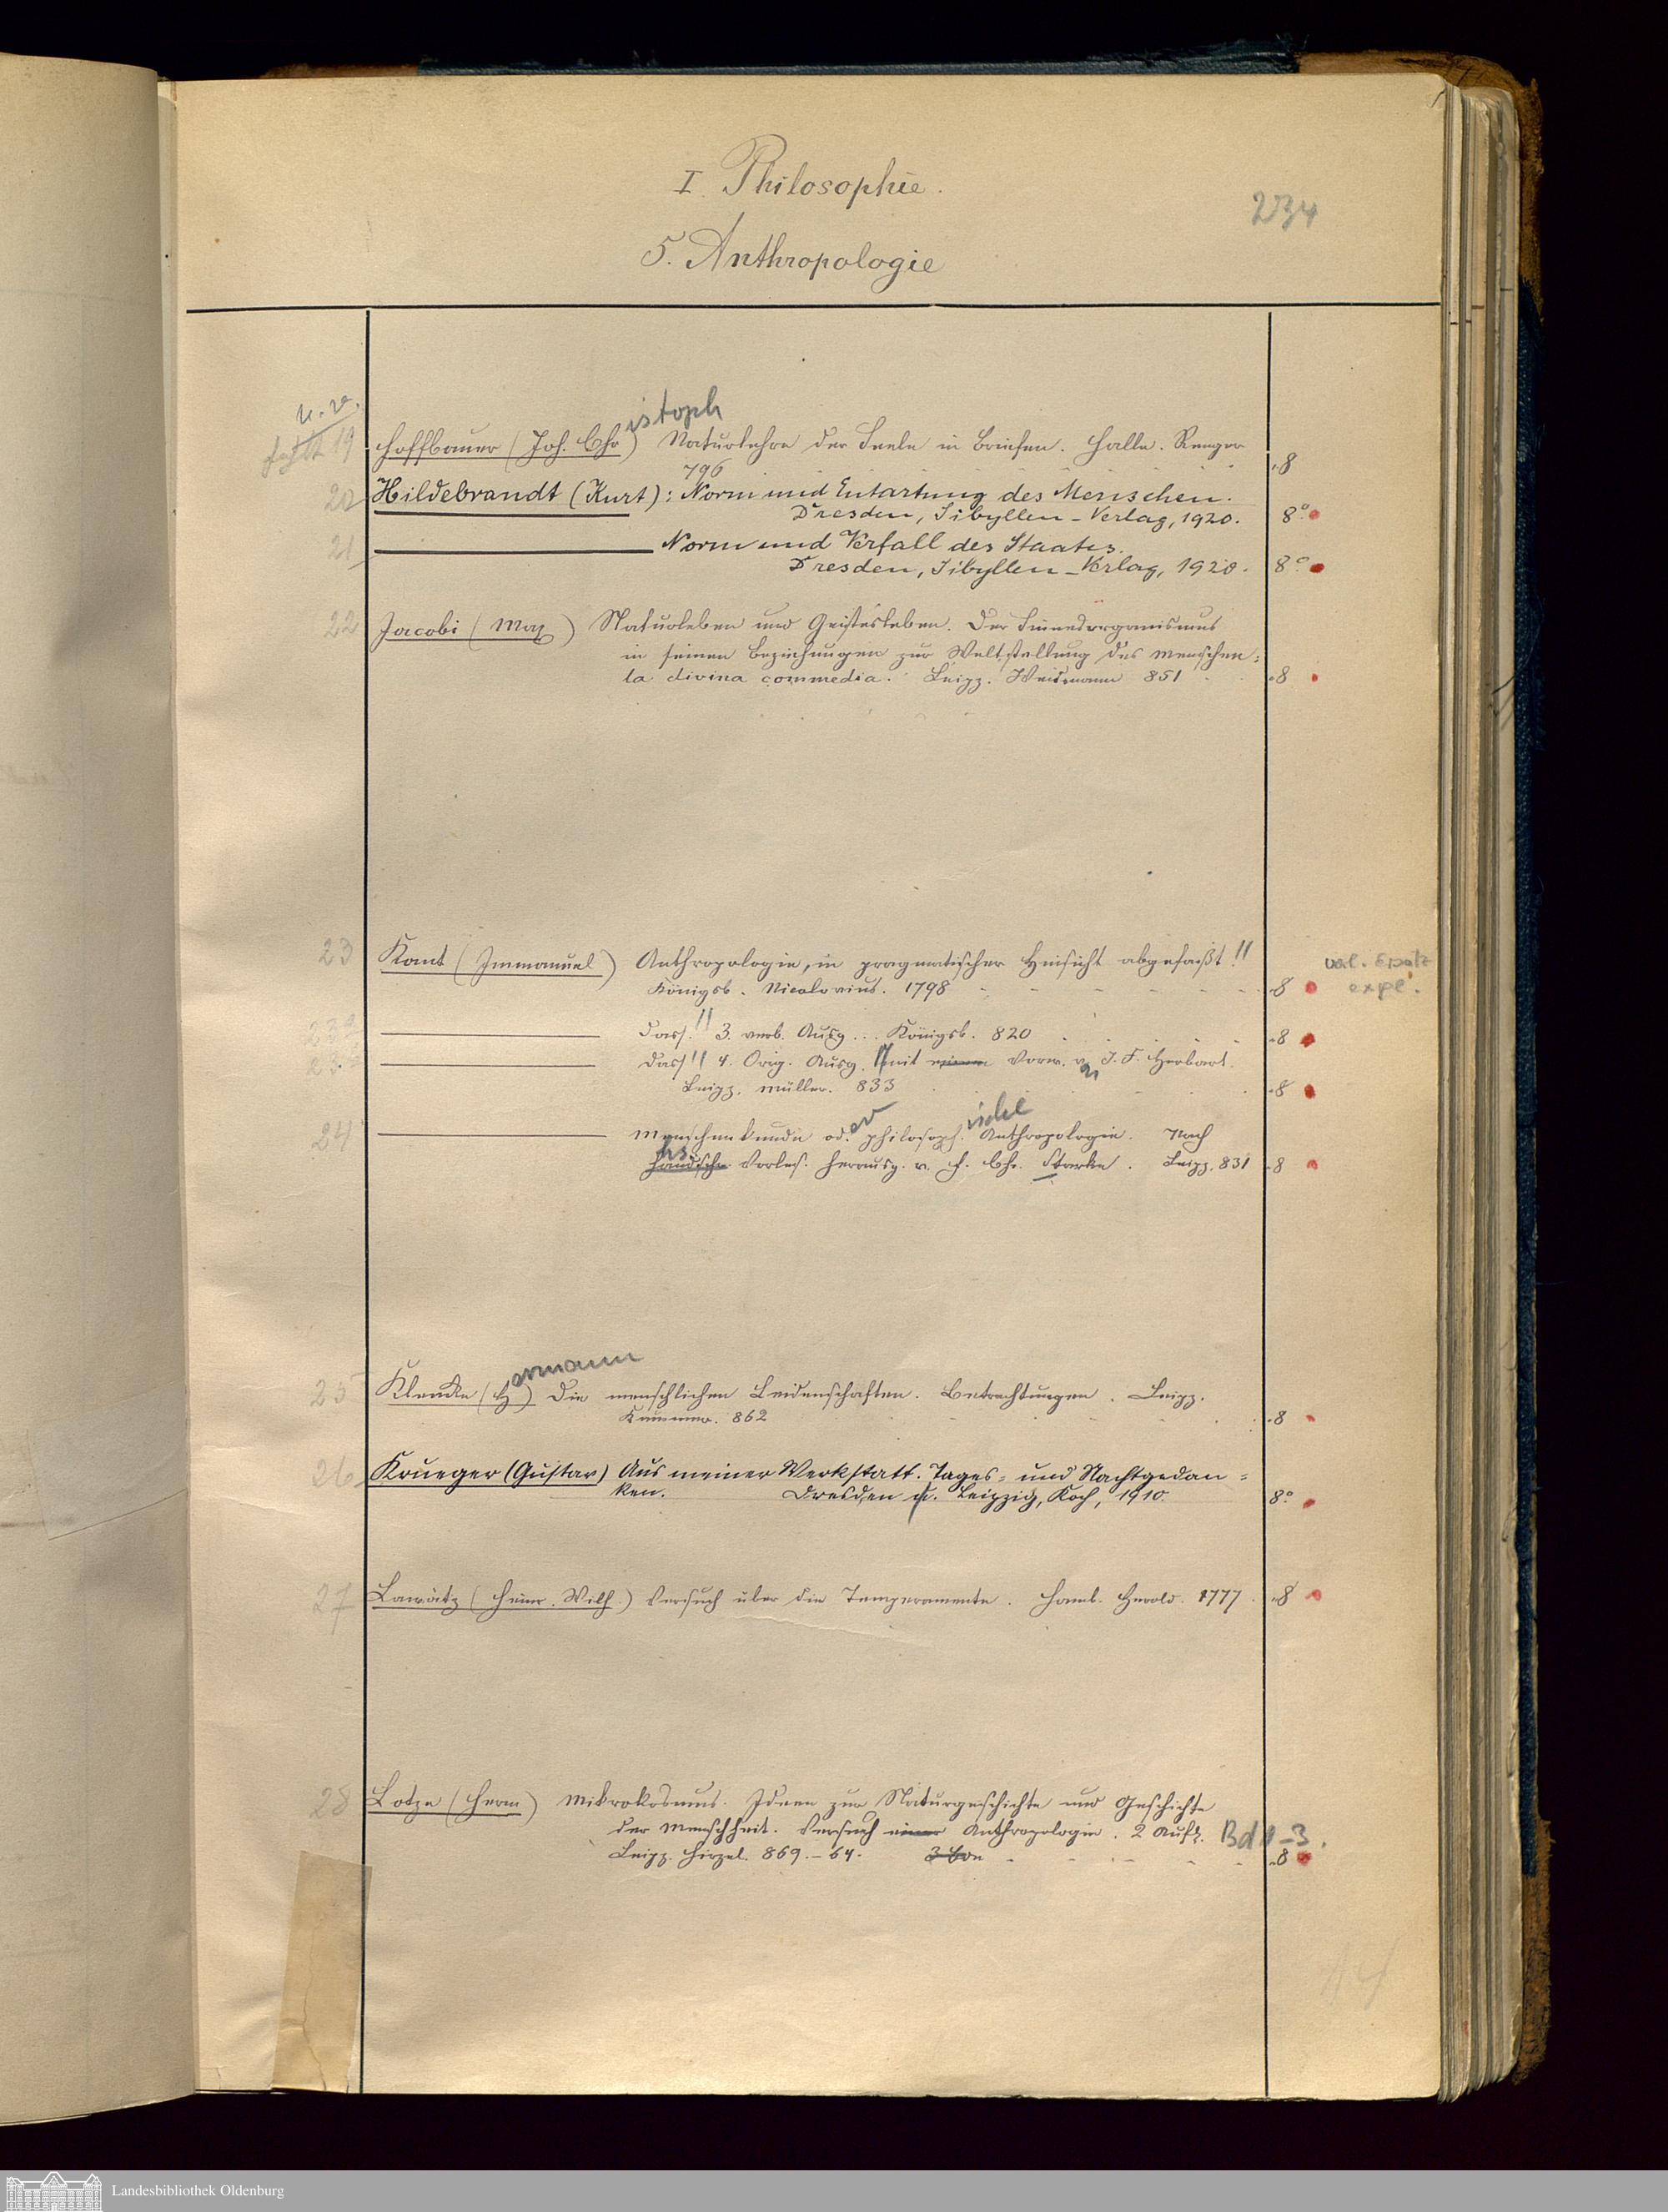 I. Philosophie.
234
5. Anthropologie
fehlt 19 Hoffbauer (Joh. Christoph) Naturlehre der Seele in Briefen. Halle. Renger
796 8
20 Hildebrandt (Kurt): Norm und Entartung des Menschen.
Dresden, Sibyllen-Verlag, 1920. 8°
21 Norm und Verfall des Staates.
Dresden, Sibyllen-Verlag, 1920. 8°
22 Jacobi (Max) Naturleben und Geistesleben. Der Sinnesorganismus
in seinen Beziehungen zur Weltstellung des Menschen:
la divina commedia. Leipz. Weidmann 851 8
23 Kant (Immanuel) Anthropologie, in pragmatischer Hinsicht abgefaßt!!
Königsb. Nicolovius. 1798 8
expl.
Dass. 3. verb. Ausg... Königsb. 820 8
Dass. 4. Orig. Ausg. Mit einem Vorw. v. J. F. Herbart.
Leipz. Müller. 833 8
24 Menschenkunde oder philosophische Anthropologie. Nach
handschr. Vorles. herausg. v. F. Chr. Starke. Leipz. 831 8
25 Klencke (Hermann) Die menschlichen Leidenschaften. Betrachtungen. Leipz.
Kummer. 862 8
26 Krueger (Gustav) Aus meiner Werkstatt. Tages- und Nachtgedan-
ken. Dresden u. Leipzig, Koch, 1910. 8°
27 Lawätz (Heinr. Wilh.) Versuch über die Temperamente. Hamb. Herold. 1777 8
28 Lotze (Herm) Mikrokosmus. Ideen zur Naturgeschichte und Geschichte
der Menschheit. Versuch einer Anthropologie. 2 Aufl. Bd 1-3.
Leipz. Hirzel. 869.-64. 3 Bde 8
14
Landesbibliothek Oldenburg